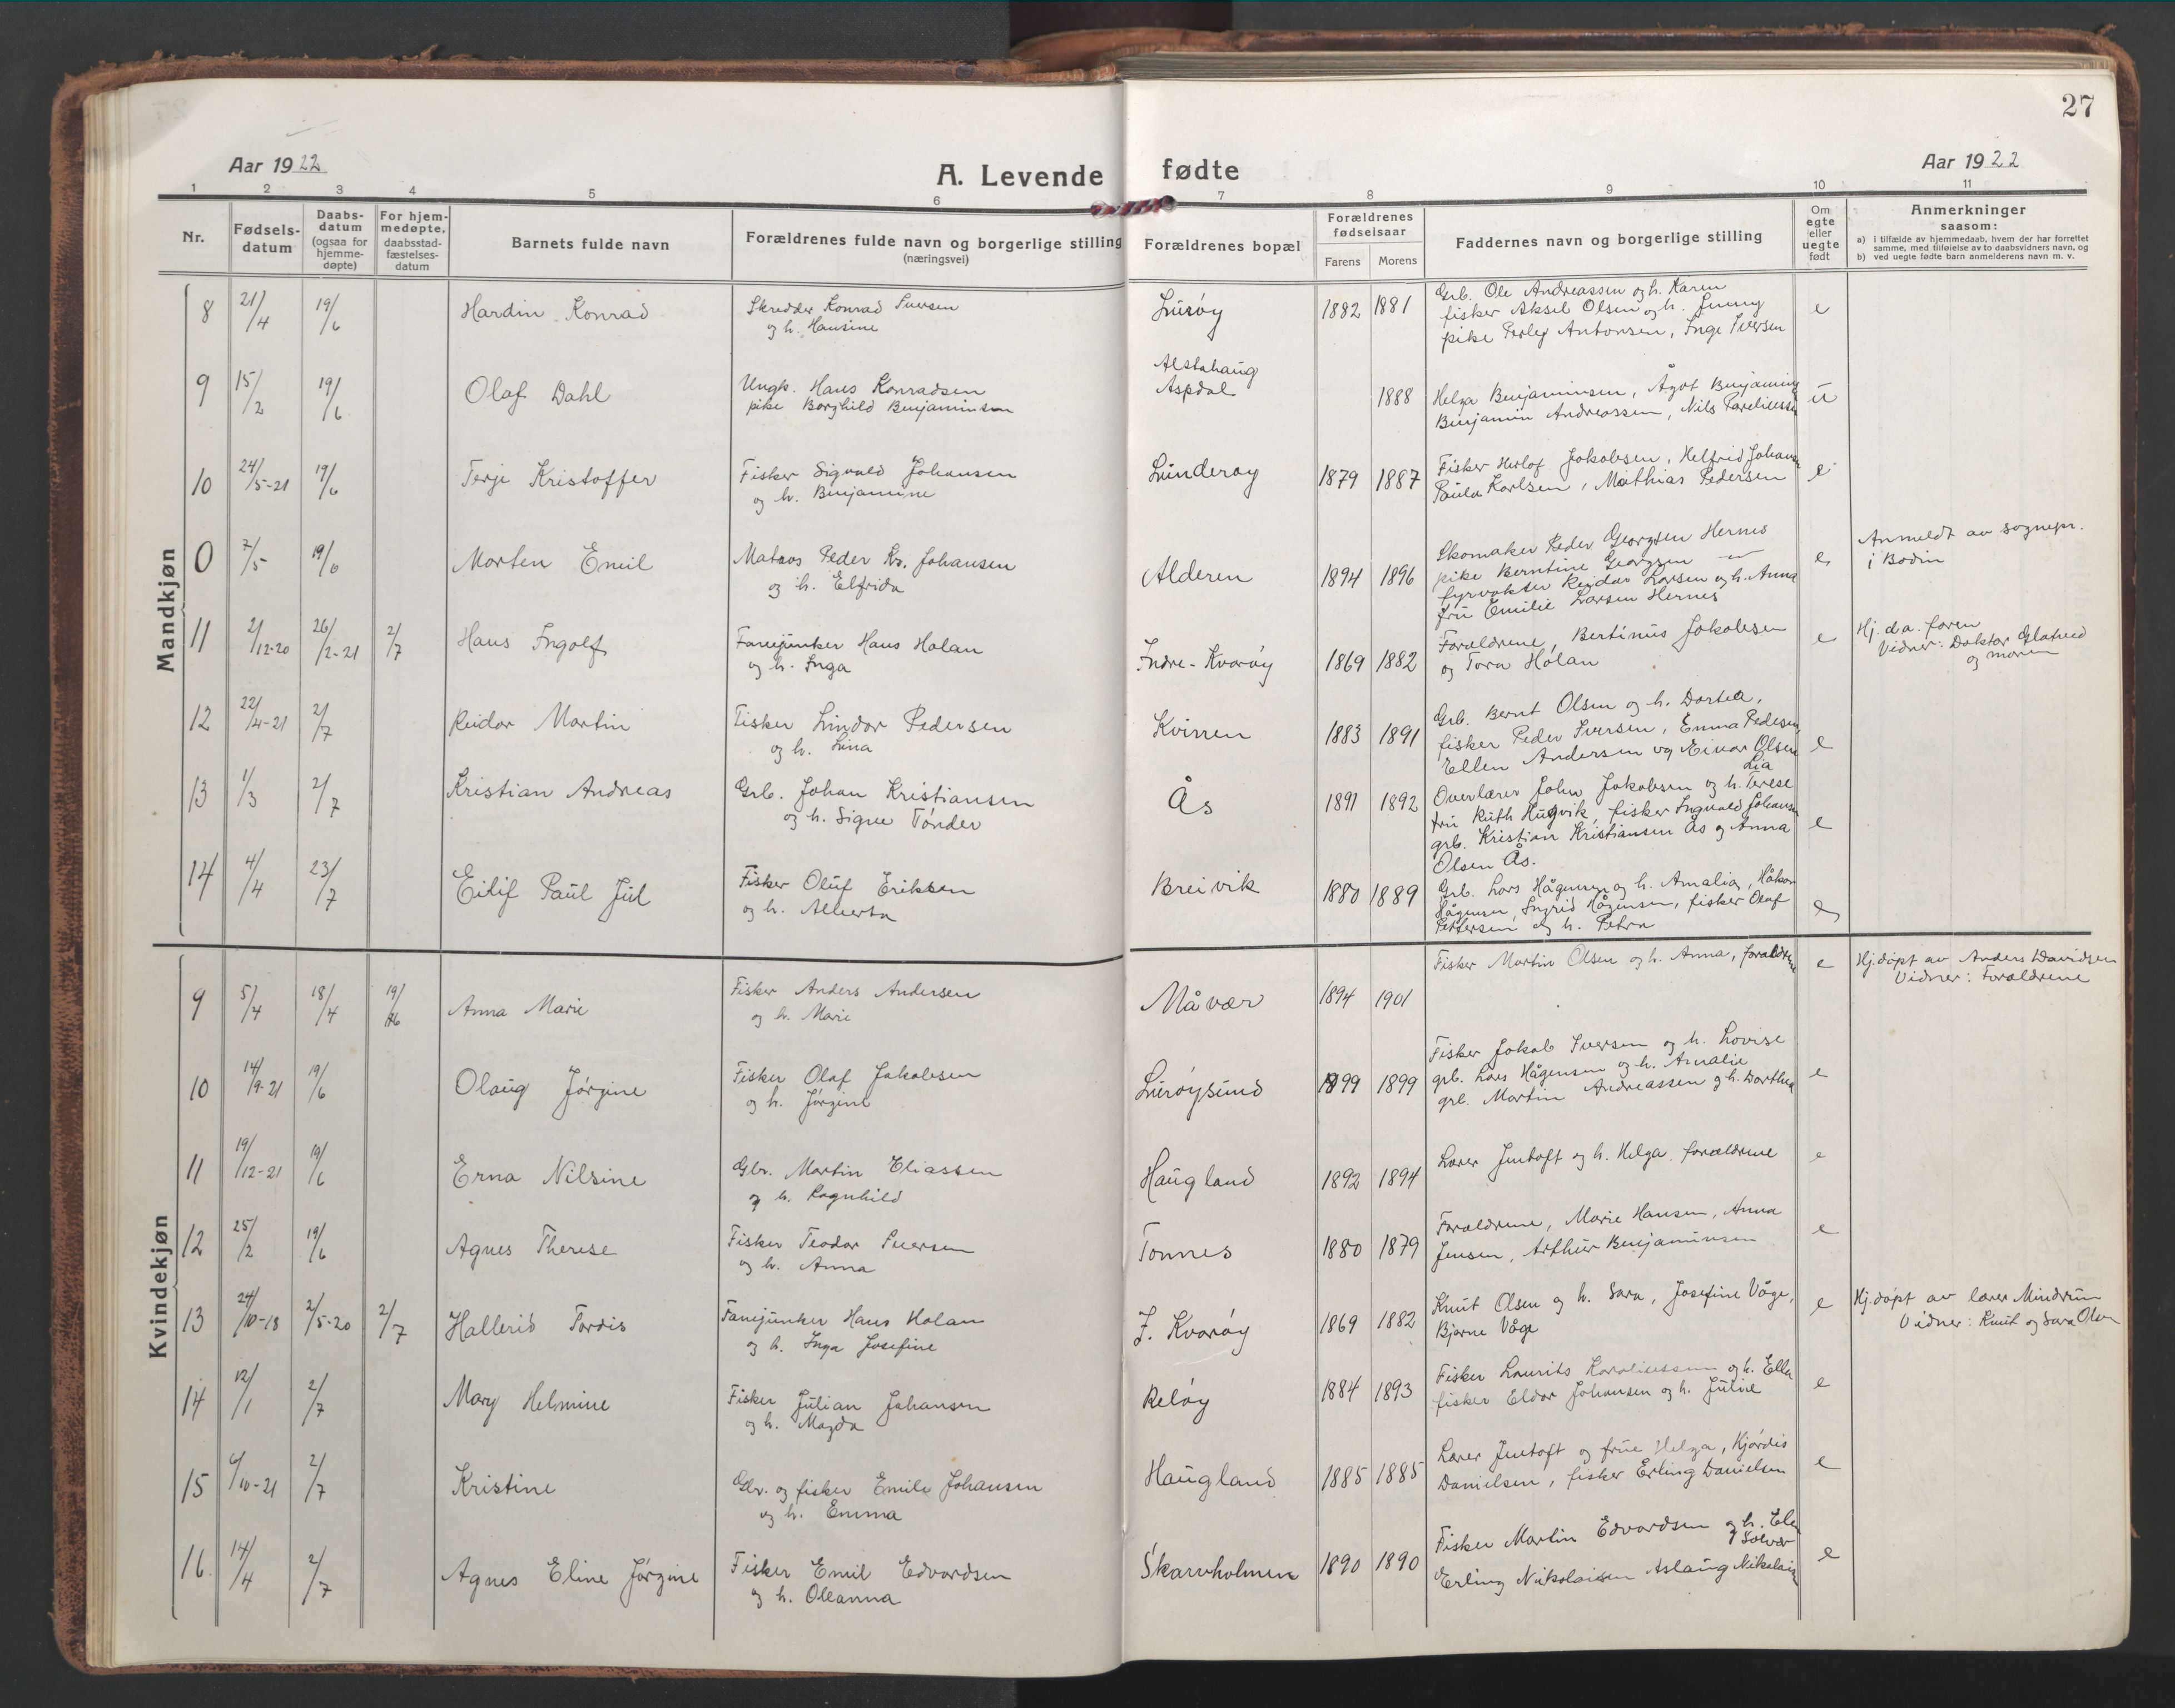 27
Aar 1922
A. Levende fødte
Aar 1922
1 2 3 4 5 6 7 8 9 10 11
Nr.
Fødsels-
datum
Daabs-
datum
(ogsaa for
hjemme-
døpte)
For hjem-
medøpte,
daabsstad-
fæstelses-
datum
Barnets fulde navn
Forældrenes fulde navn og borgerlige stilling
(næringsvei)
Forældrenes bopæl
Forældrenes
fødselsaar
Farens Morens
Faddernes navn og borgerlige stilling
Om
egte
eller
uegte
født
Anmerkninger
saasom:
a) i tilfælde av hjemmedaab, hvem der har forrettet
samme, med tilføielse av to daabsvidners navn, og
b) ved uegte fødte barn anmelderens navn m. v.
Mandkjøn
8 21/4 19/6 Hardin Konrad
Skredder Konrad Iversen
og h. Hansine
Lurøy 1882 1881
Grb. Ole Andreassen og h. Karen
fisker Aksel Olsen og h. Jenny
pike Perley Antonsen, Inge Iversen
e
9 15/2 19/6 Olaf Dahl
Ungk. Hans Konradsen
pike Borghild Benjaminsen
Alstahaug
Aspdal
1888
Helga Benjaminsen, Ågot Benjamins
Benjamin Andreassen, Nils
u
10 24/5-21 19/6 Terje Kristoffer
Fisker Sigvald Johansen
og h. Benjamine
Lunderøy 1879 1887
Fisker Herlof Jakobsen, Helfrid Johans
Paula Karlsen, Mathias Pedersen
e
0 7/5 19/6 Morten Emil
Matros Peder Kr. Johansen
og h. Elfrida
Alderen 1894 1896
Skomaker Peder Georgsen Hernes
pike Berntine Georgsen
fyrvokter Reidar Larsen og h. Anna
fru Emilie Larsen Hernes
e
Anmeldt av sognepr.
i Bodin
11 2/12-20 26/2-21 2/7 Hans Ingolf
Fanejunker Hans Holan
og h. Inga
Indre-Kvarøy 1869 1882
Forældrene, Bertinus Jakobsen
og Tora Holan
e
Hj.d. a. faren
Vidner: Doktor
og moren
12 22/4-21 2/7 Reidar Martin
Fisker Lindor Pedersen
og h. Lina
Kvinen 1883 1891
Grb. Bernt Olsen og h. Dortea,
fisker Peder Iversen, Emma Pedersen,
Ellen Andersen og Einar Olsen
Lia
e
13 1/3 2/7 Kristian Andreas
Grb. Johan Kristiansen
og h. Signe Tønder
Ås 1891 1892
Overlærer John Jakobsen og h. Terese
fru Ruth Hugvik, fisker Ingvald Johansen
grb. Kristian Kristiansen Ås og Anna
Olsen Ås.
e
14 4/4 23/7 Eilif Paul Jul
Fisker Oluf Eriksen
og h. Alberta
Breivik 1880 1889
Grb. Lars Hågensen og h. Amalia, Håkon
Hågensen, Ingrid Hågensen, fisker Olaf
Pettersen og h. Petra
e
Kvindekjøn
9 5/4 18/4 19/6 Anna Marie
Fisker Anders Andersen
og h. Marie
Måvær 1894 1901
Fisker Martin Olsen og h. Anna, forældrene
e
Hj.døpt av Anders Davidsen
Vidner: Forældrene
10 14/9-21 19/6 Olaug Jørgine
Fisker Olaf Jakobsen
og h. Jørgine
Lurøysund 1899 1899
Fisker Jakob Iversen og h. Lovise
grb. Lars Hågensen og h. Amalie
grb. Martin Andreassen og h. Dorthea
e
11 19/12-21 19/6 Erna Nilsine
Gbr. Martin Eliassen
og h. Ragnhild
Haugland 1892 1894
Lærer Jentoft og h. Helga. forældrene
e
12 25/2 19/6 Agnes Therese
Fisker Teodor Iversen
og h. Anna
Tonnes 1880 1879
Forældrene, Marie Hansen, Anna
Jensen, Arthur Benjaminsen
e
13 24/10-18 2/5-20 2/7 Hallerid Tordis
Fanejunker Hans Holan
og h. Inga Josefine
I. Kvarøy 1869 1882
Knut Olsen og h. Sara, Josefine Våge,
Bjarne Våge
e
Hj.døpt av lærer Mindrum
Vidner: Knut og Sara Olsen
14 12/1 2/7 Mary Helmine
Fisker Julian Johansen
og h. Magda
Reløy 1884 1893
Fisker Laurits Karoliussen og h. Ella
fisker Eldor Johansen og h. Julie
e
15 4/10-21 2/7 Kristine
Gbr. og fisker Emil Johansen
og h. Emma
Haugland 1885 1885
Lærer Jentoft og frue Helga, Hjørdis
Danielsen, fisker Erling Danielsen
e
16. 14/4 2/7 Agnes Eline Jørgine
Fisker Emil Edvardsen
og h. Oleanna
Skarvholmen 1890 1890
Fisker Martin Edvardsen og h.
Solvær
Erling Nikolaisen Aslaug Nikolaisen
e